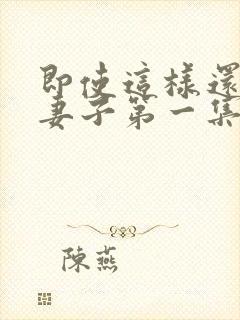 即使這樣還
妻子第一集
陳燕